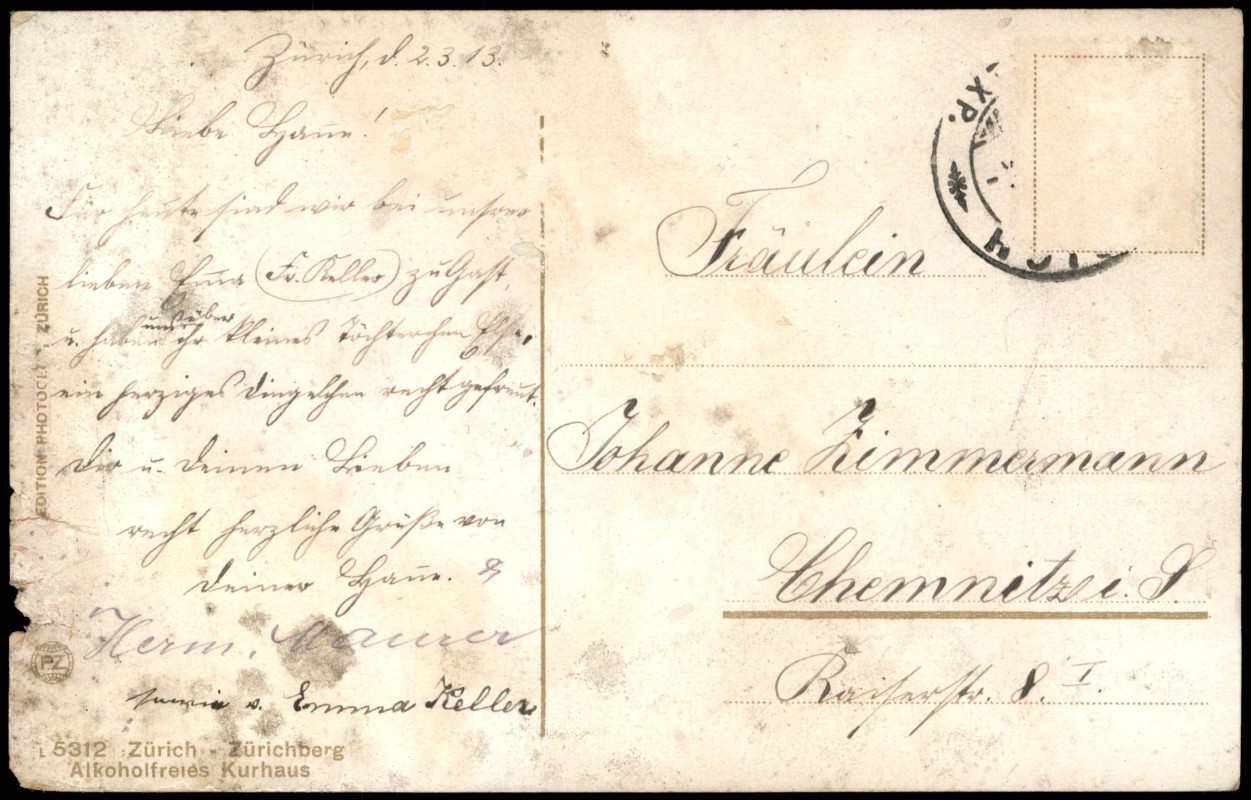 Zürich, d. 2.3.13.
Liebe Hanne!
Für heute sind wir bei unsrer
lieben Emma (Fr. Keller) zu Gast,
u. haben uns über ihr kleines Töchterchen Else,
ein herziges Dingelchen recht gefreut.
Dir u. Deinen Lieben
recht herzliche Grüße von
Deiner Hanne. &
Herm. Maurer
sowie v. Emma Keller
L 5312 Zürich - Zürichberg
Alkoholfreies Kurhaus
EDITION PHOTOGL. ZÜRICH
PZ
EXP.
Fräulein
Johanne Zimmermann
Chemnitz i. S.
Kaiserstr. 8. I.